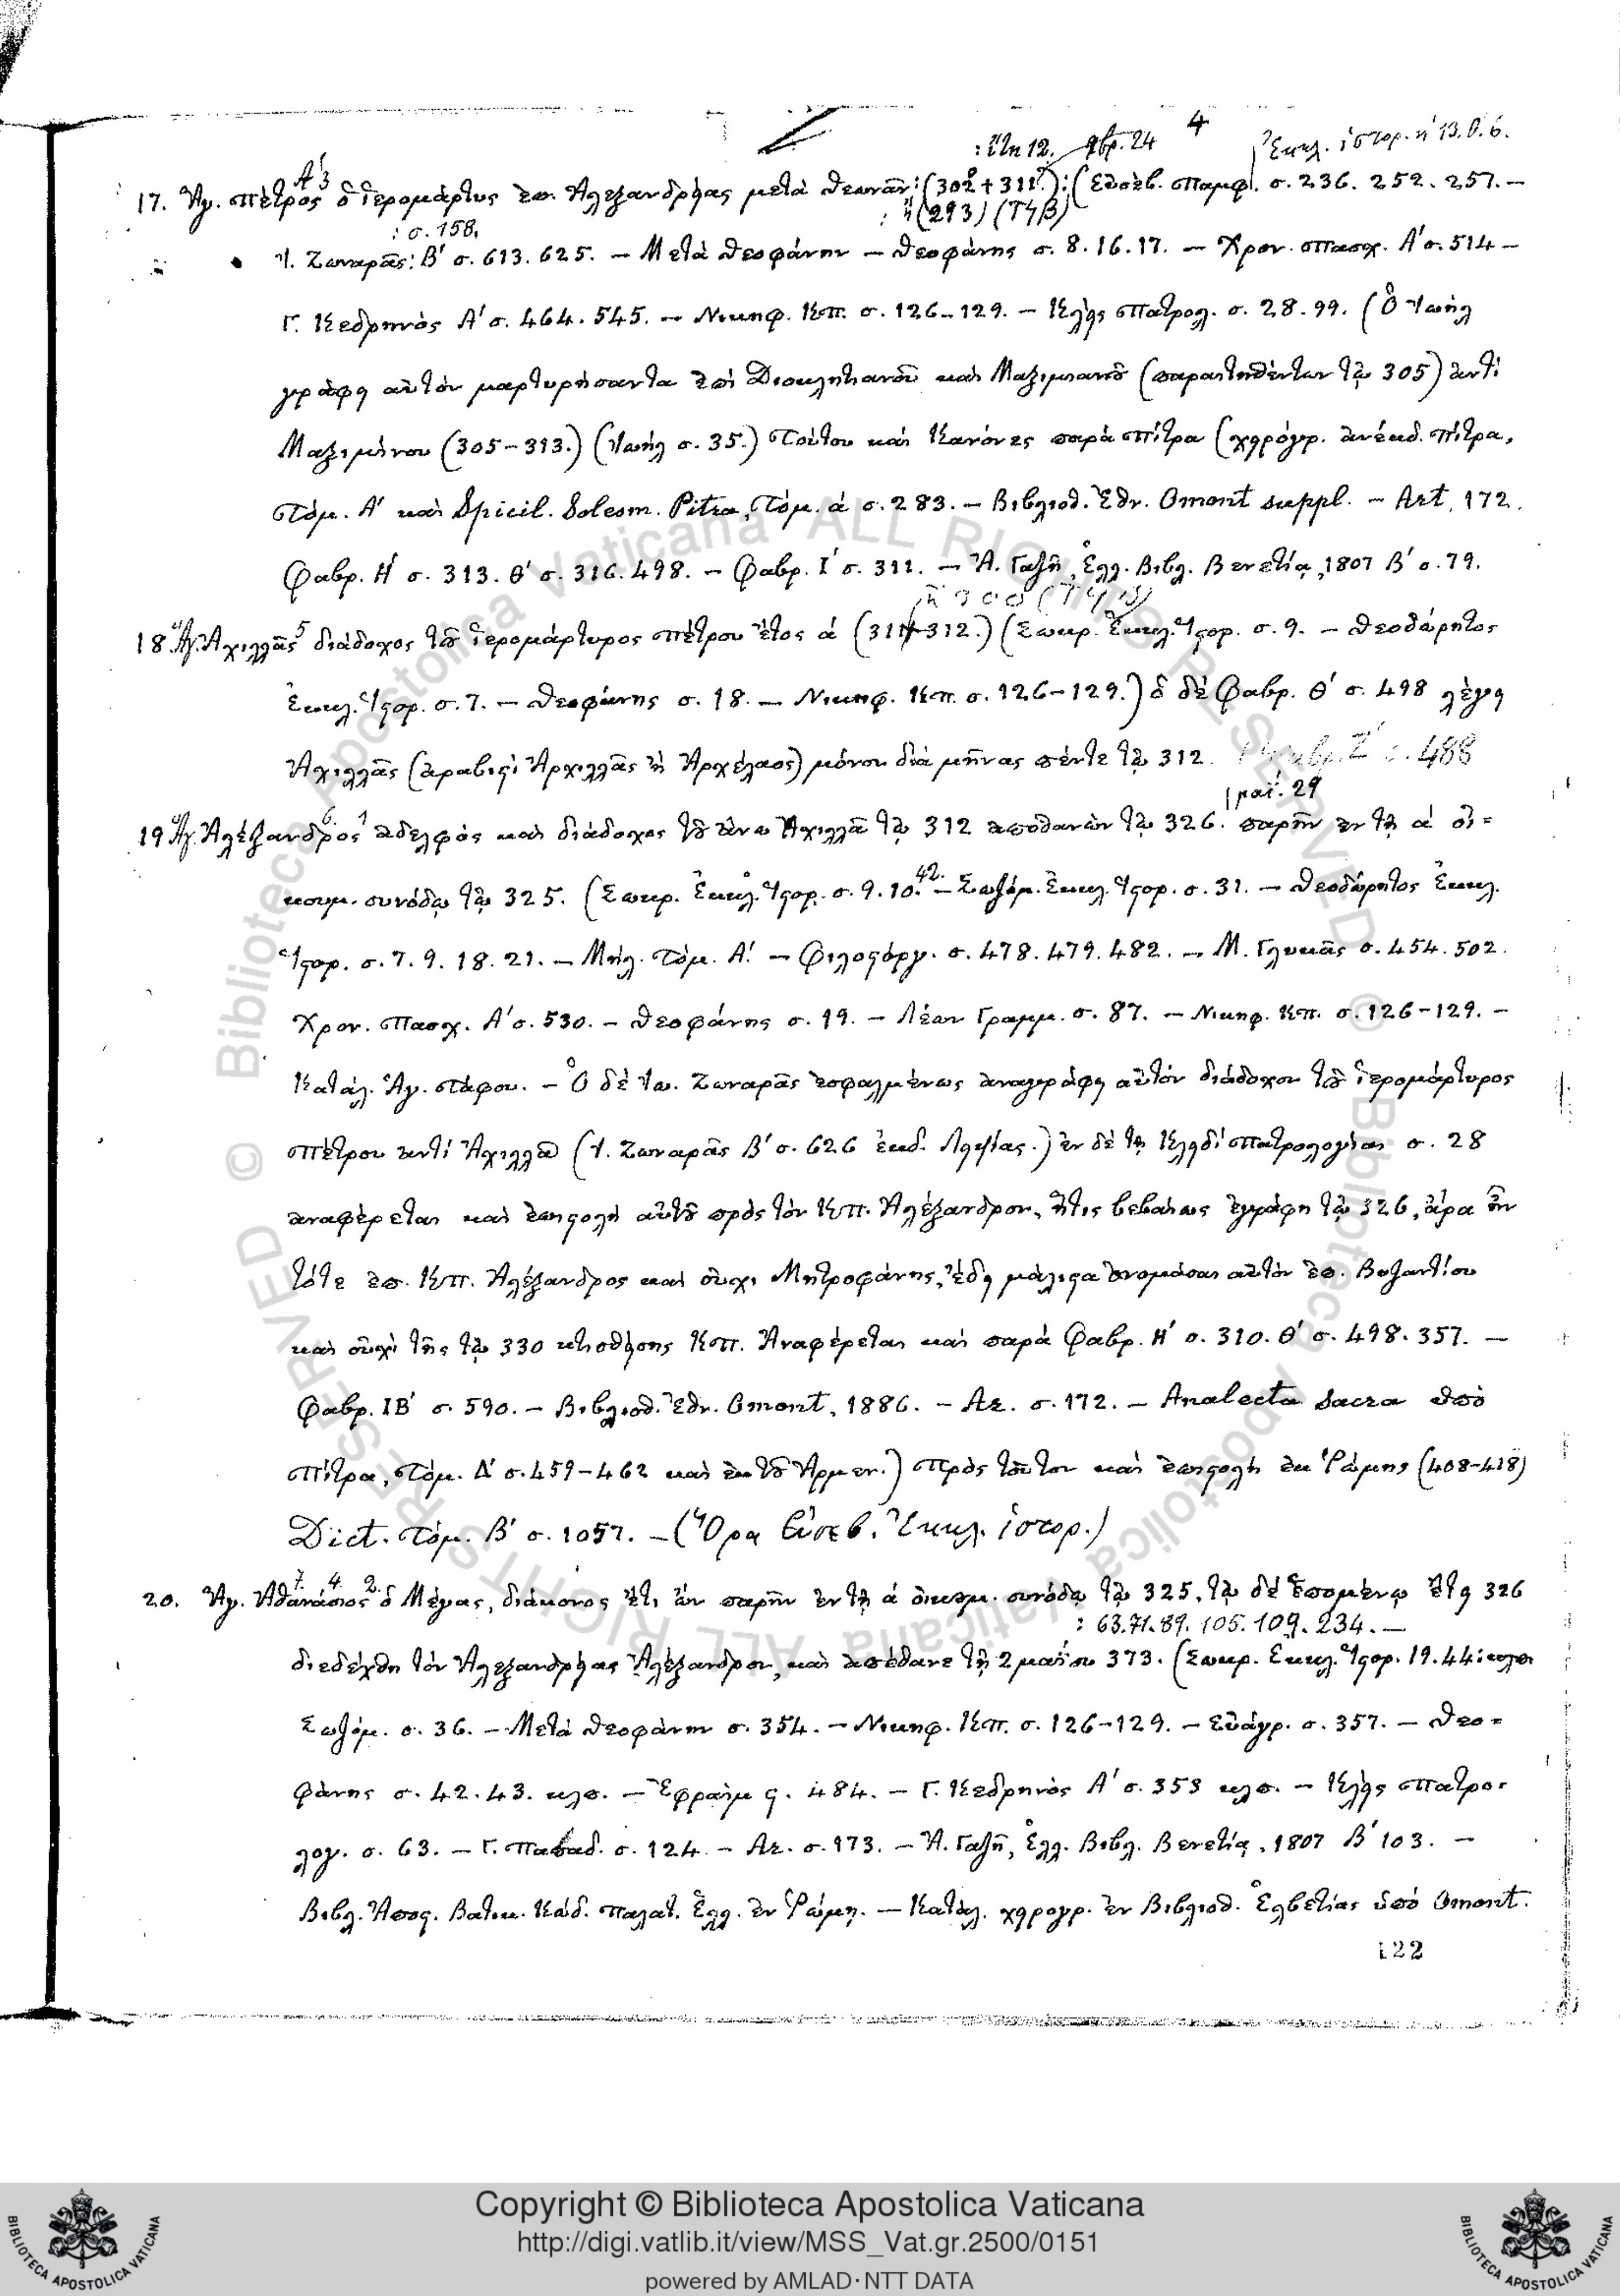 4
: ἔτη 12. 9βρ. 24 Ἐκκλ. ἱστορ. η΄ 13. θ. 6.
17. Ἅγ. Πέτρος Α΄ 3 ὁ Ἱερομάρτυς ἐπ. Ἀλεξανδρείας μετὰ Θεωνᾶν: (302 + 311): (Εὐσέβ. Παμφ. σ. 236. 252. 257. –
: ἢ (293) (ΤϟΒ)
: σ. 158.
Ἰ. Ζωναρᾶς: Β΄ σ. 613. 625. – Μετὰ Θεοφάνην – Θεοφάνης σ. 8. 16. 17. – Χρον. Πασχ. Α΄ σ. 514 –
Γ. Κεδρηνὸς Α΄ σ. 464. 545. – Νικηφ. Κπ. σ. 126–129. – Κλεὶς Πατρολ. σ. 28. 99. (Ὁ Ἰωὴλ
γράφει αὐτὸν μαρτυρήσαντα ἐπὶ Διοκλητιανοῦ καὶ Μαξιμιανοῦ (παραιτηθέντων τῷ 305) ἀντὶ
Μαξιμίνου (305–313.) (Ἰωὴλ σ. 35.) Τούτου καὶ Κανόνες παρὰ Πίτρα (χειρόγρ. ἀνέκδ. Πίτρα,
Τόμ. Α΄ καὶ Spicil. Solesm. Pitra, Τόμ. ά σ. 283. – Βιβλιοθ. Ἐθν. Omont suppl. – Art. 172.
Φαβρ. Η΄ σ. 313. Θ΄ σ. 316. 498. – Φαβρ. Ι΄ σ. 311. – Ἀ. Γαζῆ, Ἑλλ. Βιβλ. Βενετίᾳ, 1807 Β΄ σ. 79.
ἢ 300
18. Ἅγ. Ἀχιλλᾶς 5 διάδοχος τοῦ Ἱερομάρτυρος Πέτρου ἔτος ά (311+312.) (Σωκρ. Ἐκκλ. Ἱστορ. σ. 9. – Θεοδώρητος
Ἐκκλ. Ἱστορ. σ. 7. – Θεοφάνης σ. 18. – Νικηφ. Κπ. σ. 126–129.) ὁ δὲ Φαβρ. Θ΄ σ. 498 λέγει
Ἀχιλλᾶς (ἀραβιστὶ Ἀρχιλλᾶς ἢ Ἀρχέλαος) μόνον διὰ μῆνας πέντε τῷ 312. Φαβρ. Ζ΄ σ. 488
μαΐ. 29
19. Ἅγ. Ἀλέξανδρος 6 1 ἀδελφὸς καὶ διάδοχος τοῦ ἄνω Ἀχιλλᾶ τῷ 312 ἀποθανὼν τῷ 326. παρῆν ἐν τῇ ά οἰ=
κουμ. συνόδῳ τῷ 325. (Σωκρ. Ἐκκλ. Ἱστορ. σ. 9. 10. 42. – Σωζόμ. Ἐκκλ. Ἱστορ. σ. 31. – Θεοδώρητος Ἐκκλ.
Ἱστορ. σ. 7. 9. 18. 21. – Μήλ. Τόμ. Α΄. – Φιλοστόργ. σ. 478. 479. 482. – Μ. Γλυκᾶς σ. 454. 502.
Χρον. Πασχ. Α΄ σ. 530. – Θεοφάνης σ. 19. – Λέων Γραμμ. σ. 87. – Νικηφ. Κπ. σ. 126–129. –
Κατάλ. Ἁγ. Τάφου. – Ὁ δὲ Ἰω. Ζωναρᾶς ἐσφαλμένως ἀναγράφει αὐτὸν διάδοχον τοῦ Ἱερομάρτυρος
Πέτρου ἀντὶ Ἀχιλλᾶ (Ἰ. Ζωναρᾶς Β΄ σ. 626 ἐκδ. Λειψίας.) ἐν δὲ τῇ Κλειδὶ Πατρολογίας σ. 28
ἀναφέρεται καὶ ἐπιστολὴ αὐτοῦ πρὸς τὸν Κπ. Ἀλέξανδρον, ἥτις βεβαίως ἐγράφη τῷ 326, ἄρα ἦν
τότε ἐπ. Κπ. Ἀλέξανδρος καὶ οὐχὶ Μητροφάνης, ἔδει μάλιστα ὀνομάσαι αὐτὸν ἐπ. Βυζαντίου
καὶ οὐχὶ τῆς τῷ 330 κτισθείσης Κπ. Ἀναφέρεται καὶ παρὰ Φαβρ. Η΄ σ. 310. Θ΄ σ. 498. 357. –
Φαβρ. ΙΒ΄ σ. 590. – Βιβλιοθ. Ἐθν. Omont, 1886. – Ar. σ. 172. – Analecta Sacra ὑπὸ
Πίτρα, Τόμ. Δ΄ σ. 459–462 καὶ ἐκ τοῦ Ἀρμεν.) Πρὸς τοῦτον καὶ ἐπιστολὴ ἐκ Ῥώμης (408–418)
Dict. Τόμ. Β΄ σ. 1057. – (Ὅρα Εὐσεβ. Ἐκκλ. ἱστορ.)
20. Ἅγ. Ἀθανάσιος 7. 4. 2. ὁ Μέγας, διάκονος ἔτι ὢν παρῆν ἐν τῇ ά οἰκουμ. συνόδῳ τῷ 325, τῷ δὲ ἑπομένῳ ἔτει 326
: 63. 71. 89. 105. 109. 234. –
διεδέχθη τὸν Ἀλεξανδρείας Ἀλέξανδρον, καὶ ἀπέθανε τῇ 2 μαΐου 373. (Σωκρ. Ἐκκλ. Ἱστορ. 19. 44: κλπ.
Σωζόμ. σ. 36. – Μετὰ Θεοφάνην σ. 354. – Νικηφ. Κπ. σ. 126–129. – Εὐάγρ. σ. 357. – Θεο=
φάνης σ. 42. 43. κλπ. – Ἐφραὶμ ς. 484. – Γ. Κεδρηνὸς Α΄ σ. 353 κλπ. – Κλεὶς Πατρο=
λογ. σ. 63. – Γ. Παπαδ. σ. 124. – Ar. σ. 173. – Ἀ. Γαζῆ, Ἑλλ. Βιβλ. Βενετίᾳ, 1807 Β΄ 103. –
Βιβλ. Ἀποστ. Βατικ. Κώδ. Παλατ. Ἑλλ. ἐν Ῥώμῃ. – Κατάλ. χειρογρ. ἐν Βιβλιοθ. Ἑλβετίας ὑπὸ Omont.
122
© Biblioteca Apostolica Vaticana ALL RIGHTS RESERVED © Biblioteca Apostolica Vaticana ALL RIGHTS RESERVED
Copyright © Biblioteca Apostolica Vaticana
http://digi.vatlib.it/view/MSS_Vat.gr.2500/0151
powered by AMLAD·NTT DATA
BIBLIOTECA APOSTOLICA VATICANA
BIBLIOTECA APOSTOLICA VATICANA